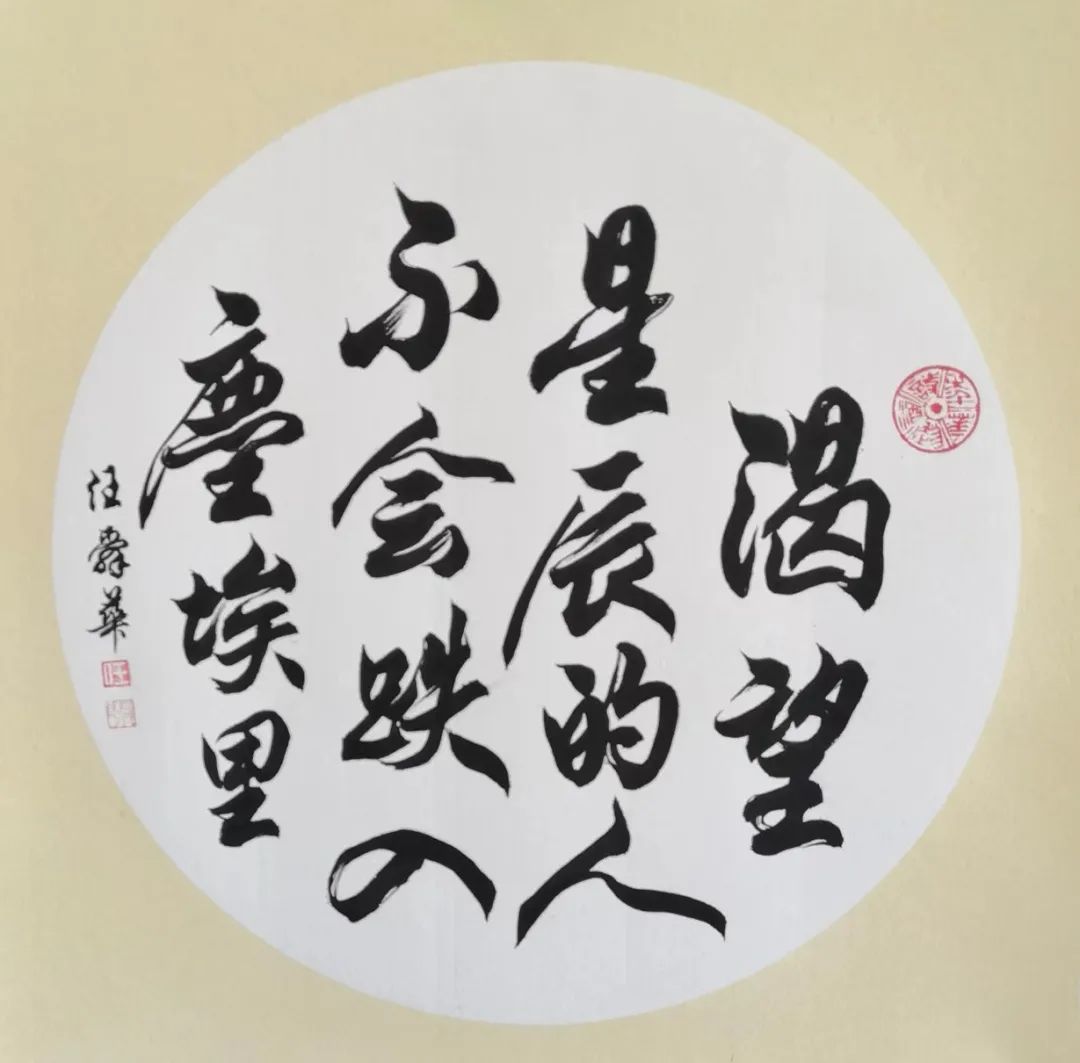 渴望
星辰的人
不会跌入
塵埃里
任舜華